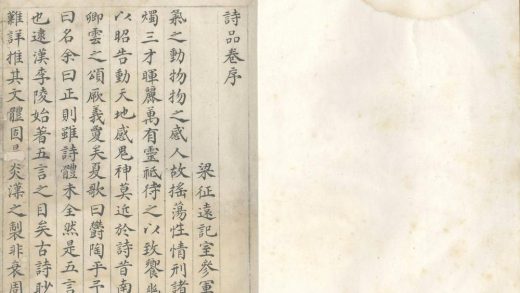 詩品卷序
梁征遠記室參軍
氣之動物物之感人故搖蕩性情刑諸
燭三才暉麗萬有靈祗待之以致饗幽
以昭告動天地感鬼神莫近於詩昔南
卿雲之頌厥義敻矣夏歌曰欝陶乎予
曰名余曰正則雖詩體未全然是五言
也逮漢李陵始著五言之目矣古詩眇
難詳推其文體固炎漢之製非衰周